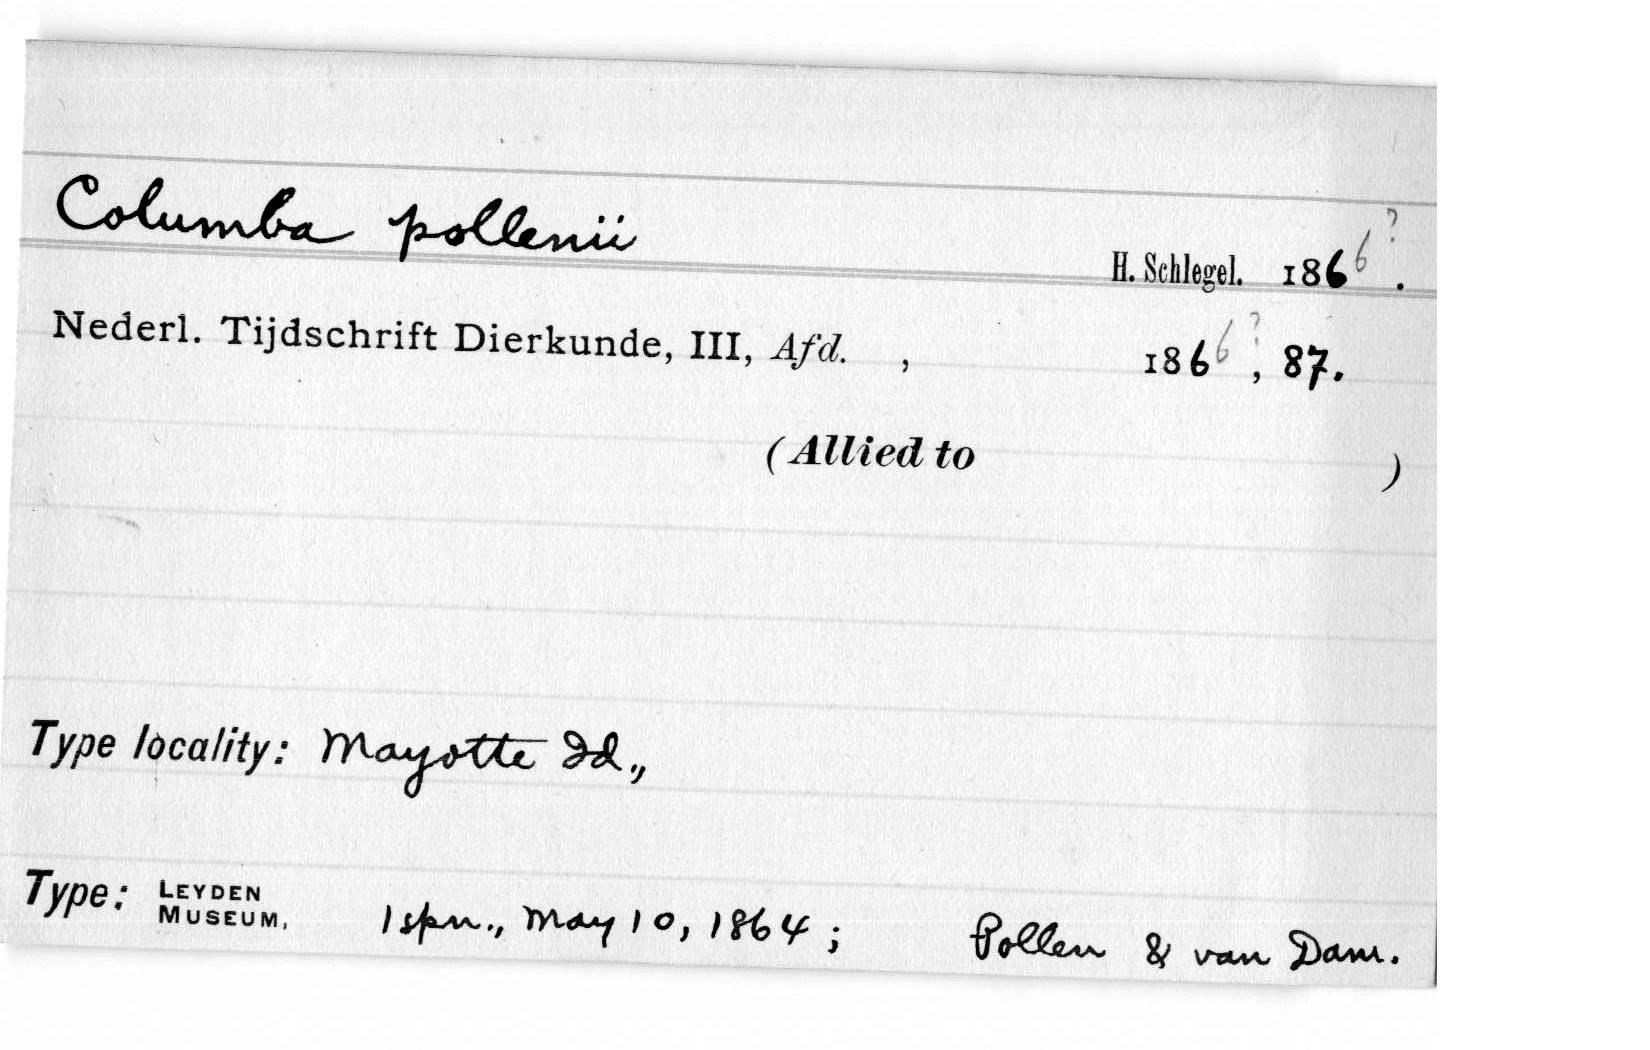 Columba pollenii
H. Schlegel. 1866?.
Nederl. Tijdschrift Dierkunde, III, Afd. , 1866?, 87.
(Allied to )
Type locality: Mayotte Id.,
Type: LEYDEN MUSEUM, 1 spn., May 10, 1864; Pollen & van Dam.